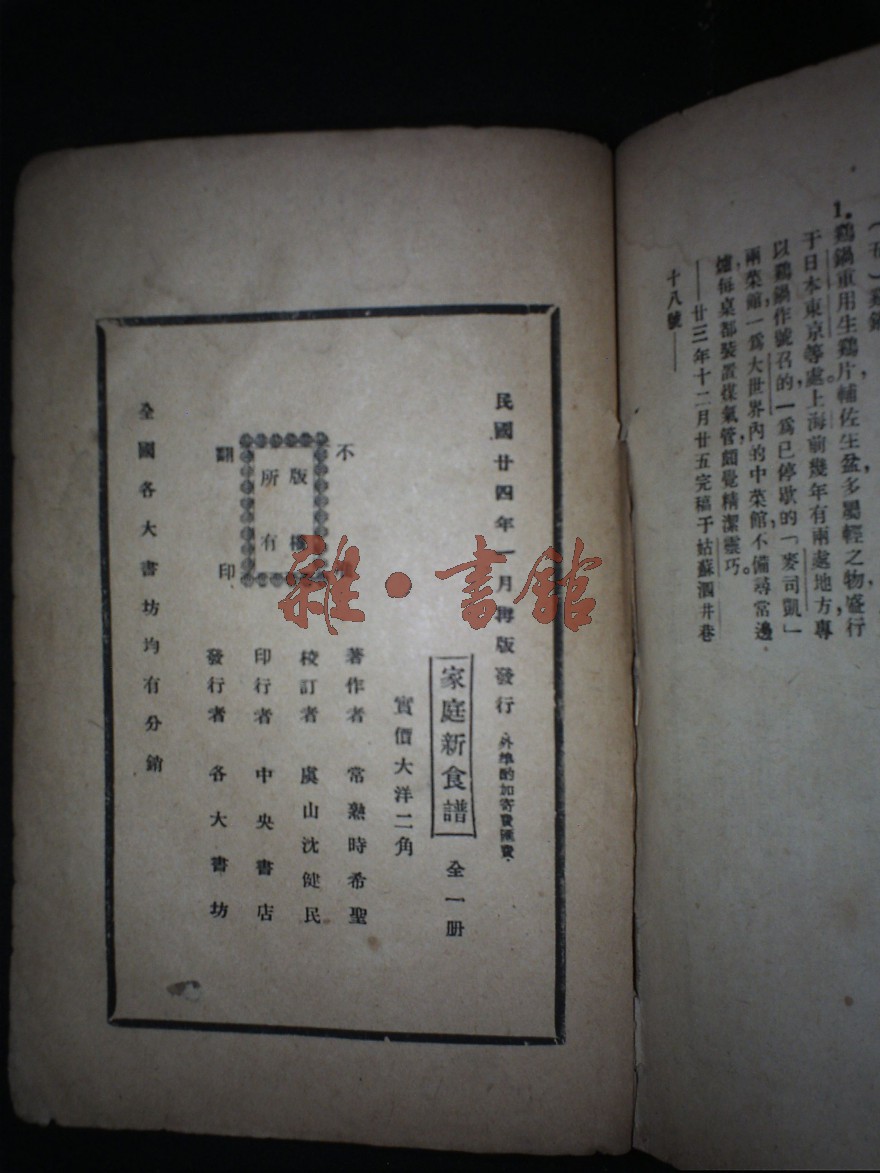 1. 鷄鍋重用生鷄片，輔佐生盆，多屬輕之物，盛行
于日本東京等處。上海前幾年有兩處地方，專
以鷄鍋作號召的，一爲已停歇的「麥司凱」
兩菜館，一爲大世界內的中菜館，不備尋常邊
爐，每桌都裝置煤氣管，頗覺精潔靈巧。
——廿三年十二月廿五完稿于姑蘇泗井巷
十八號——
民國廿四年一月再版發行
外埠酌加寄費匯費
家庭新食譜
全一册
實價大洋二角
著作者 常熟時希聖
校訂者 虞山沈健民
印行者 中央書店
發行者 各大書坊
不
版權
所有
翻印
全國各大書坊均有分銷
雜·書館